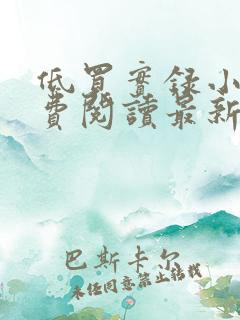 低買實録小
費閱讀最新
巴斯卡尔
未经同意禁止转载